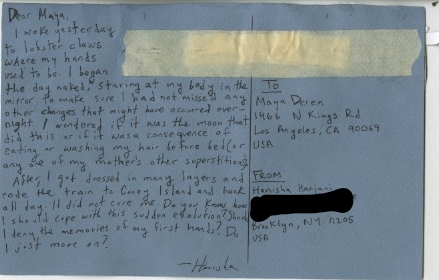 Dear Maya,
I woke yesterday
to lobster claws
where my hands
used to be. I began
the day naked, staring at my body in the
mirror to make sure I had not missed any
other changes that might have occurred over-
night. I wondered if it was the moon that
did this or if it was a consequence of
eating or washing my hair before bed (or
any one of my mother's other superstitions)
After, I got dressed in many layers and
rode the train to Coney Island and back
all day. It did not cure me. Do you know how
I should cope with this sudden evolution? Should
I deny the memories of my first hands? Do
I just move on?
—Hanisha
TO
Maya Deren
1466 N Kings Rd
Los Angeles, CA 90069
USA
FROM
Hanisha Harjani
Brooklyn, NY 11205
USA